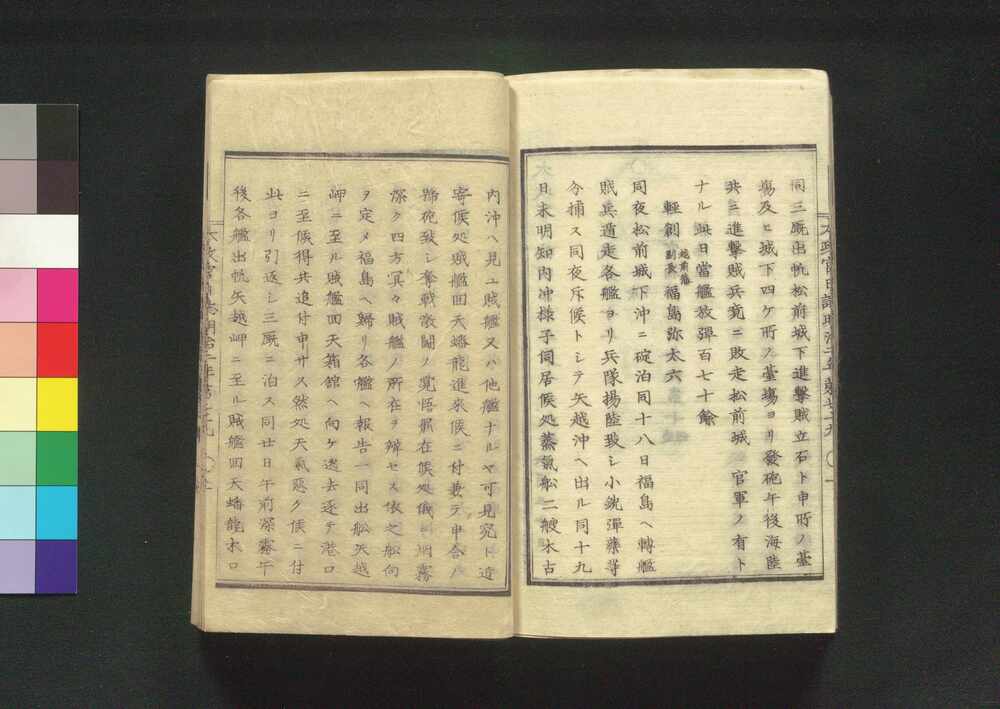 同三厩出帆松前城下進撃賊立石ト申所ノ臺
場及ヒ城下四ケ所ノ臺場ヨリ發砲午後海陸
共ニ進撃賊兵竟ニ敗走松前城 官軍ノ有ト
ナル此日當艦放彈百七十餘
輕創 越前藩副長 福島弥太六
同夜松前城下沖ニ碇泊同十八日福島ヘ轉艦
賊兵遁走各艦ヨリ兵隊揚陸致シ小銃彈藥等
分捕ス同夜斥候トシテ矢越沖ヘ出ル同十九
日未明知内沖様子伺居候処蒸氣船二艘木古
内沖ヘ見ユ賊艦又ハ他艦ナルヤ可見究ト追
寄候処賊艦回天蟠龍進来候ニ付兼テ申合ハ
諦砲發シ奪戦激闘ノ覚悟罷在候処俄ニ烟霧
深ク四方冥々賊艦ノ所在ヲ辨セス依之船向
ヲ定メ福島ヘ歸リ各艦ヘ報告一同出船矢越
岬ニ至ル賊艦回天箱館ヘ向ケ遁去逐テ港口
ニ至候得共追付申サス然処天氣悪ク候ニ付
此ヨリ引返シ三厩ニ泊ス同廿日午前深霧午
後各艦出帆矢越岬ニ至ル賊艦回天蟠龍木口